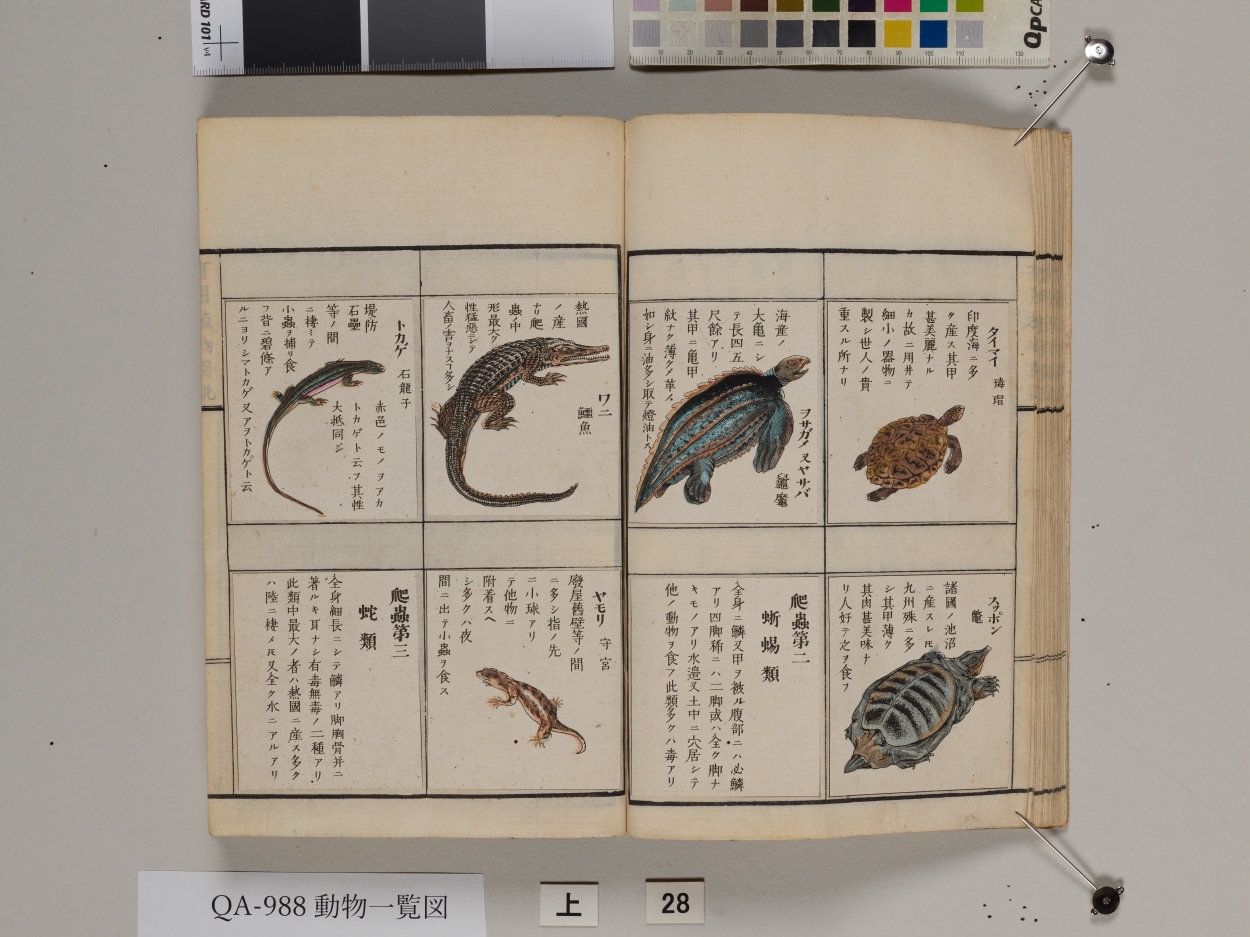 タイマイ 瑇瑁
印度海ニ多
ク産ス其甲
甚美麗ナル
カ故ニ用井テ
細小ノ器物ニ
製シ世人ノ貴
重スル所ナリ
スッポン 鼈
諸國ノ池沼
ニ産スレ𪜈
九州殊ニ多
シ其甲薄ク
其肉甚美味ナ
リ人好テ之ヲ食フ
ヲサガメ 又ヤサバ
海産ノ
大亀ニシ
テ長四五
尺餘アリ
其甲ニ亀甲
紋ナク薄クメ革ノ
如シ身ニ油多シ取テ燈油トス
爬蟲第二
蜥蜴類
全身ニ鱗又甲ヲ被ル腹部ニハ必鱗
アリ四脚稀ニハ二脚或ハ全ク脚ナ
キモノアリ水邉又土中ニ穴居シテ
他ノ動物ヲ食フ此類多クハ毒アリ
ワニ 鱷魚
熱國
ノ産
ナリ爬
蟲ノ中
形最大ク
性猛悪ニテ
人畜ノ害ヲナスヿ多シ
ヤモリ 守宮
廢屋舊壁等ノ間
ニ多シ指ノ先
ニ小球アリ
テ他物ニ
附着スヘ
シ多クハ夜
間ニ出テ小蟲ヲ食ス
トカゲ 石龍子
堤防
石壘
等ノ間
ニ棲ミテ
小蟲ヲ捕リ食
フ背ニ碧條ア
ルニヨリシマトカゲ又アヲトカゲト云
赤色ノモノヲアカ
トカゲト云フ其性
大抵同ジ
爬蟲第三
蛇類
全身細長ニシテ鱗アリ脚胸骨并ニ
著ルキ耳ナシ有毒無毒ノ二種アリ
此類中最大ノ者ハ熱國ニ産ス多ク
ハ陸ニ棲メ𪜈又全ク水ニアルアリ
QA-988 動物一覧図
上
28
ARD 101 v4
QPCA
10 20 30 40 50 60 70 80 90 100 110 130